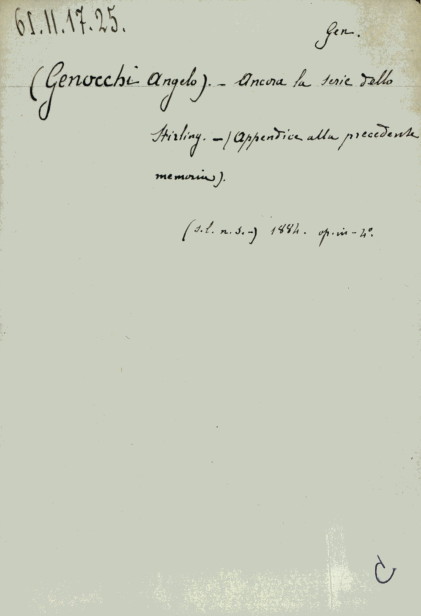 61.11.17.25.
Gen.
(Genocchi Angelo). - Ancora la serie dello
Stirling. - (Appendice alla precedente
memoria).
(s.l. n. s. -) 1884. op. in - 4°.